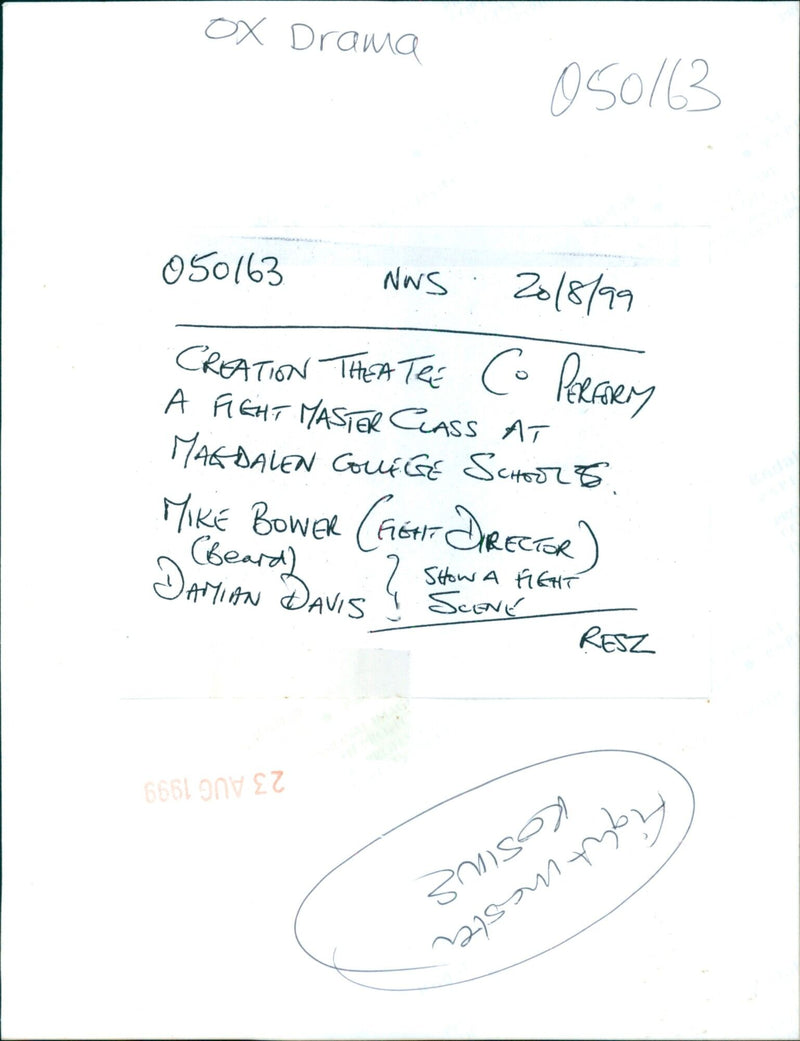 OX Drama
050163
050163 NWS 20/8/99
CREATION THEATRE CO PERFORM
A FIGHT MASTER CLASS AT
MAGDALEN COLLEGE SCHOOLS.
MIKE BOWER (FIGHT DIRECTOR)
(Beard)
DAMIAN DAVIS } SHOW A FIGHT
SCENE
RESZ
23 AUG 1999
Fight master